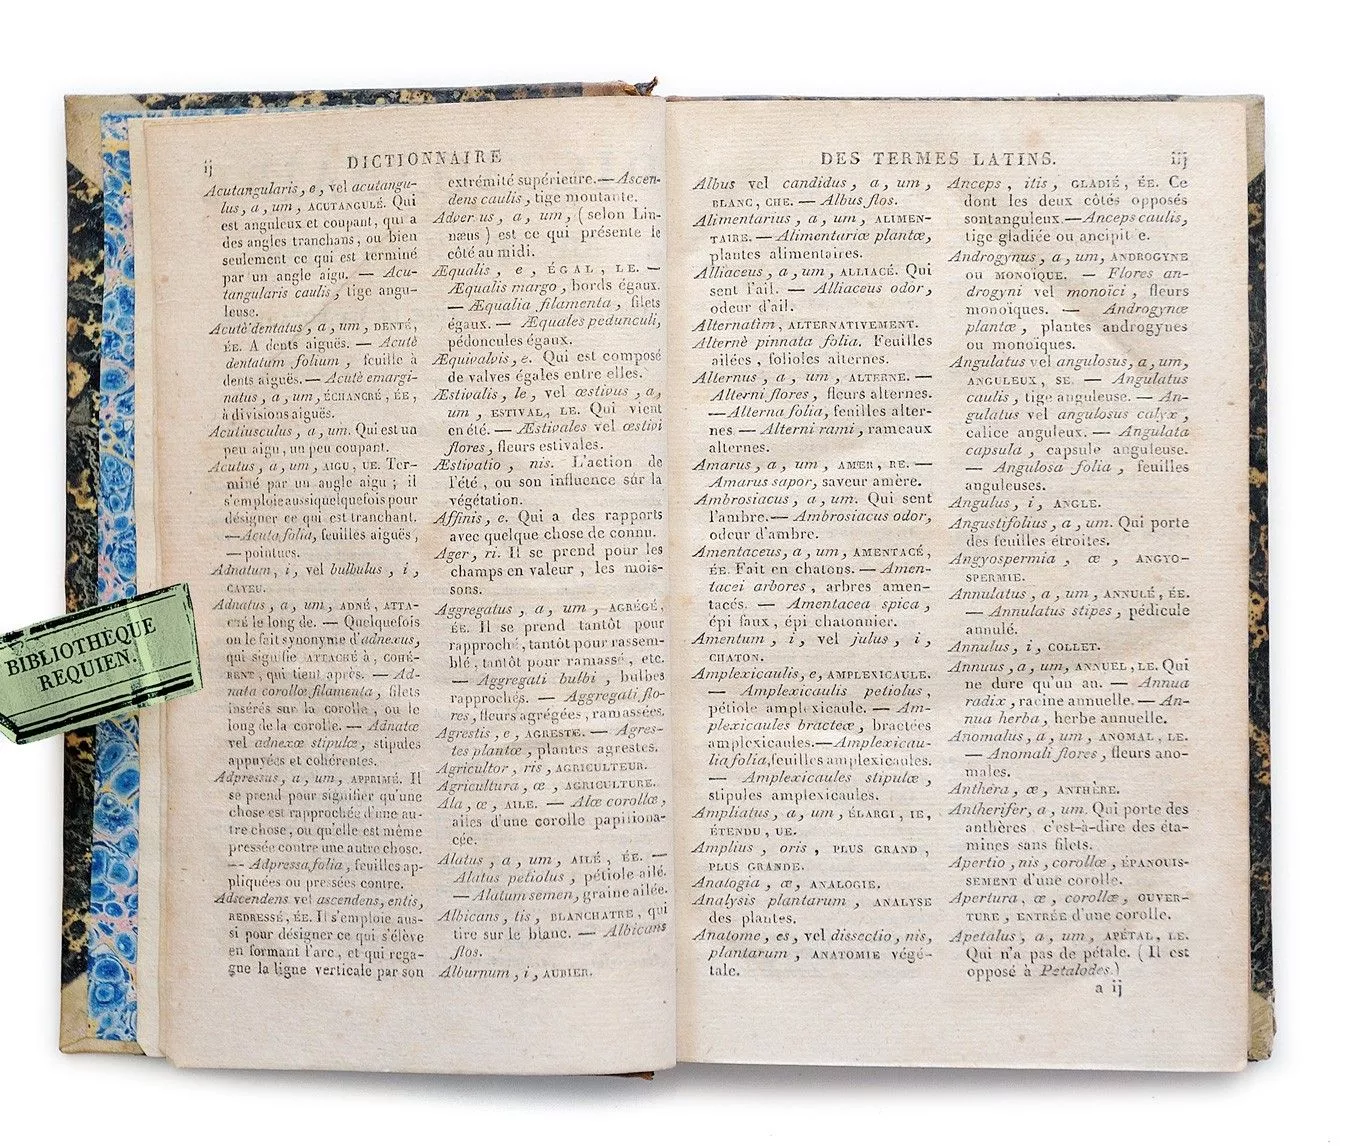 ij
DICTIONNAIRE
Acutangularis, e, vel acutangu-
lus, a, um, ACUTANGULÉ. Qui
est anguleux et coupant, qui a
des angles tranchans, ou bien
seulement ce qui est terminé
par un angle aigu. — Acu-
tangularis caulis, tige angu-
leuse.
Acutè dentatus, a, um, DENTÉ,
ÉE. A dents aiguës. — Acutè
dentatum folium, feuille à
dents aiguës. — Acutè emargi-
natus, a, um, ÉCHANCRÉ, ÉE,
à divisions aiguës.
Acutiusculus, a, um. Qui est un
peu aigu, un peu coupant.
Acutus, a, um, AIGU, UE. Ter-
miné par un angle aigu ; il
s'emploie aussi quelquefois pour
désigner ce qui est tranchant.
— Acuta folia, feuilles aiguës,
— pointues.
Adnatum, i, vel bulbulus, i,
CAYEU.
Adnatus, a, um, ADNÉ, ATTA-
CHÉ le long de. — Quelquefois
on le fait synonyme d'adnexus,
qui signifie ATTACHÉ à, COHÉ-
RENT, qui tient après. — Ad-
nata corollæ filamenta, filets
insérés sur la corolle, ou le
long de la corolle. — Adnatæ
vel adnexæ stipulæ, stipules
appuyées et cohérentes.
Adpressus, a, um, APPRIMÉ. Il
se prend pour signifier qu'une
chose est rapprochée d'une au-
tre chose, ou qu'elle est même
pressée contre une autre chose.
— Adpressa folia, feuilles ap-
pliquées ou pressées contre.
Adscendens vel ascendens, entis,
REDRESSÉ, ÉE. Il s'emploie aus-
si pour désigner ce qui s'élève
en formant l'arc, et qui rega-
gne la ligne verticale par son
extrémité supérieure. — Ascen-
dens caulis, tige montante.
Adversus, a, um, (selon Lin-
næus) est ce qui présente le
côté au midi.
Æqualis, e, ÉGAL, LE. —
Æqualis margo, bords égaux.
— Æqualia filamenta, filets
égaux. — Æquales pedunculi,
pédoncules égaux.
Æquivalvis, e. Qui est composé
de valves égales entre elles.
Æstivalis, le, vel æstivus, a,
um, ESTIVAL, LE. Qui vient
en été. — Æstivales vel æstivi
flores, fleurs estivales.
Æstivatio, nis. L'action de
l'été, ou son influence sûr la
végétation.
Affinis, e. Qui a des rapports
avec quelque chose de connu.
Ager, ri. Il se prend pour les
champs en valeur, les mois-
sons.
Aggregatus, a, um, AGRÉGÉ,
ÉE. Il se prend tantôt pour
rapproché, tantôt pour rassem-
blé, tantôt pour ramassé, etc.
— Aggregati bulbi, bulbes
rapprochés. — Aggregati flo-
res, fleurs agrégées, ramassées.
Agrestis, e, AGRESTE. — Agres-
tes plantæ, plantes agrestes.
Agricultor, ris, AGRICULTEUR.
Agricultura, æ, AGRICULTURE.
Ala, æ, AILE. — Alæ corollæ,
ailes d'une corolle papiliona-
cée.
Alatus, a, um, AILÉ, ÉE. —
Alatus petiolus, pétiole ailé.
— Alatum semen, graine ailée.
Albicans, tis, BLANCHATRE, qui
tire sur le blanc. — Albicans
flos.
Alburnum, i, AUBIER.
DES TERMES LATINS.
iij
Albus vel candidus, a, um,
BLANC, CHE. — Albus flos.
Alimentarius, a, um, ALIMEN-
TAIRE. — Alimentariæ plantæ,
plantes alimentaires.
Alliaceus, a, um, ALLIACÉ. Qui
sent l'ail. — Alliaceus odor,
odeur d'ail.
Alternatìm, ALTERNATIVEMENT.
Alternè pinnata folia. Feuilles
ailées, folioles alternes.
Alternus, a, um, ALTERNE. —
Alterni flores, fleurs alternes.
— Alterna folia, feuilles alter-
nes — Alterni rami, rameaux
alternes.
Amarus, a, um, AMER, RE. —
Amarus sapor, saveur amère.
Ambrosiacus, a, um. Qui sent
l'ambre. — Ambrosiacus odor,
odeur d'ambre.
Amentaceus, a, um, AMENTACÉ,
ÉE. Fait en chatons. — Amen-
tacei arbores, arbres amen-
tacés. — Amentacea spica,
épi faux, épi chatonnier.
Amentum, i, vel julus, i,
CHATON.
Amplexicaulis, e, AMPLEXICAULE.
— Amplexicaulis petiolus,
pétiole amplexicaule. — Am-
plexicaules bracteæ, bractées
amplexicaules. — Amplexicau-
lia folia, feuilles amplexicaules.
— Amplexicaules stipulæ,
stipules amplexicaules.
Ampliatus, a, um, ÉLARGI, IE,
ÉTENDU, UE.
Amplius, oris, PLUS GRAND,
PLUS GRANDE.
Analogia, æ, ANALOGIE.
Analysis plantarum, ANALYSE
des plantes.
Anatome, es, vel dissectio, nis,
plantarum, ANATOMIE végé-
tale.
Anceps, itis, GLADIÉ, ÉE. Ce
dont les deux côtés opposés
sont anguleux. — Anceps caulis,
tige gladiée ou ancipit e.
Androgynus, a, um, ANDROGYNE
OU MONOÏQUE. — Flores an-
drogyni vel monoïci, fleurs
monoïques. — Androgynæ
plantæ, plantes androgynes
ou monoïques.
Angulatus vel angulosus, a, um,
ANGULEUX, SE. — Angulatus
caulis, tige anguleuse. — An-
gulatus vel angulosus calyx,
calice anguleux. — Angulata
capsula, capsule anguleuse.
— Angulosa folia, feuilles
anguleuses.
Angulus, i, ANGLE.
Angustifolius, a, um. Qui porte
des feuilles étroites.
Angyospermia, æ, ANGYO-
SPERMIE.
Annulatus, a, um, ANNULÉ, ÉE.
— Annulatus stipes, pédicule
annulé.
Annulus, i, COLLET.
Annuus, a, um, ANNUEL, LE. Qui
ne dure qu'un an. — Annua
radix, racine annuelle. — An-
nua herba, herbe annuelle.
Anomalus, a, um, ANOMAL, LE.
— Anomali flores, fleurs ano-
males.
Anthera, æ, ANTHÈRE.
Antherifer, a, um. Qui porte des
anthères c'est-à-dire des éta-
mines sans filets.
Apertio, nis, corollæ, ÉPANOUIS-
SEMENT d'une corolle.
Apertura, æ, corollæ, OUVER-
TURE, ENTRÉE d'une corolle.
Apetalus, a, um, APÉTAL, LE.
Qui n'a pas de pétale. (Il est
opposé à Petalodes.)
a ij
BIBLIOTHÈQUE
REQUIEN.